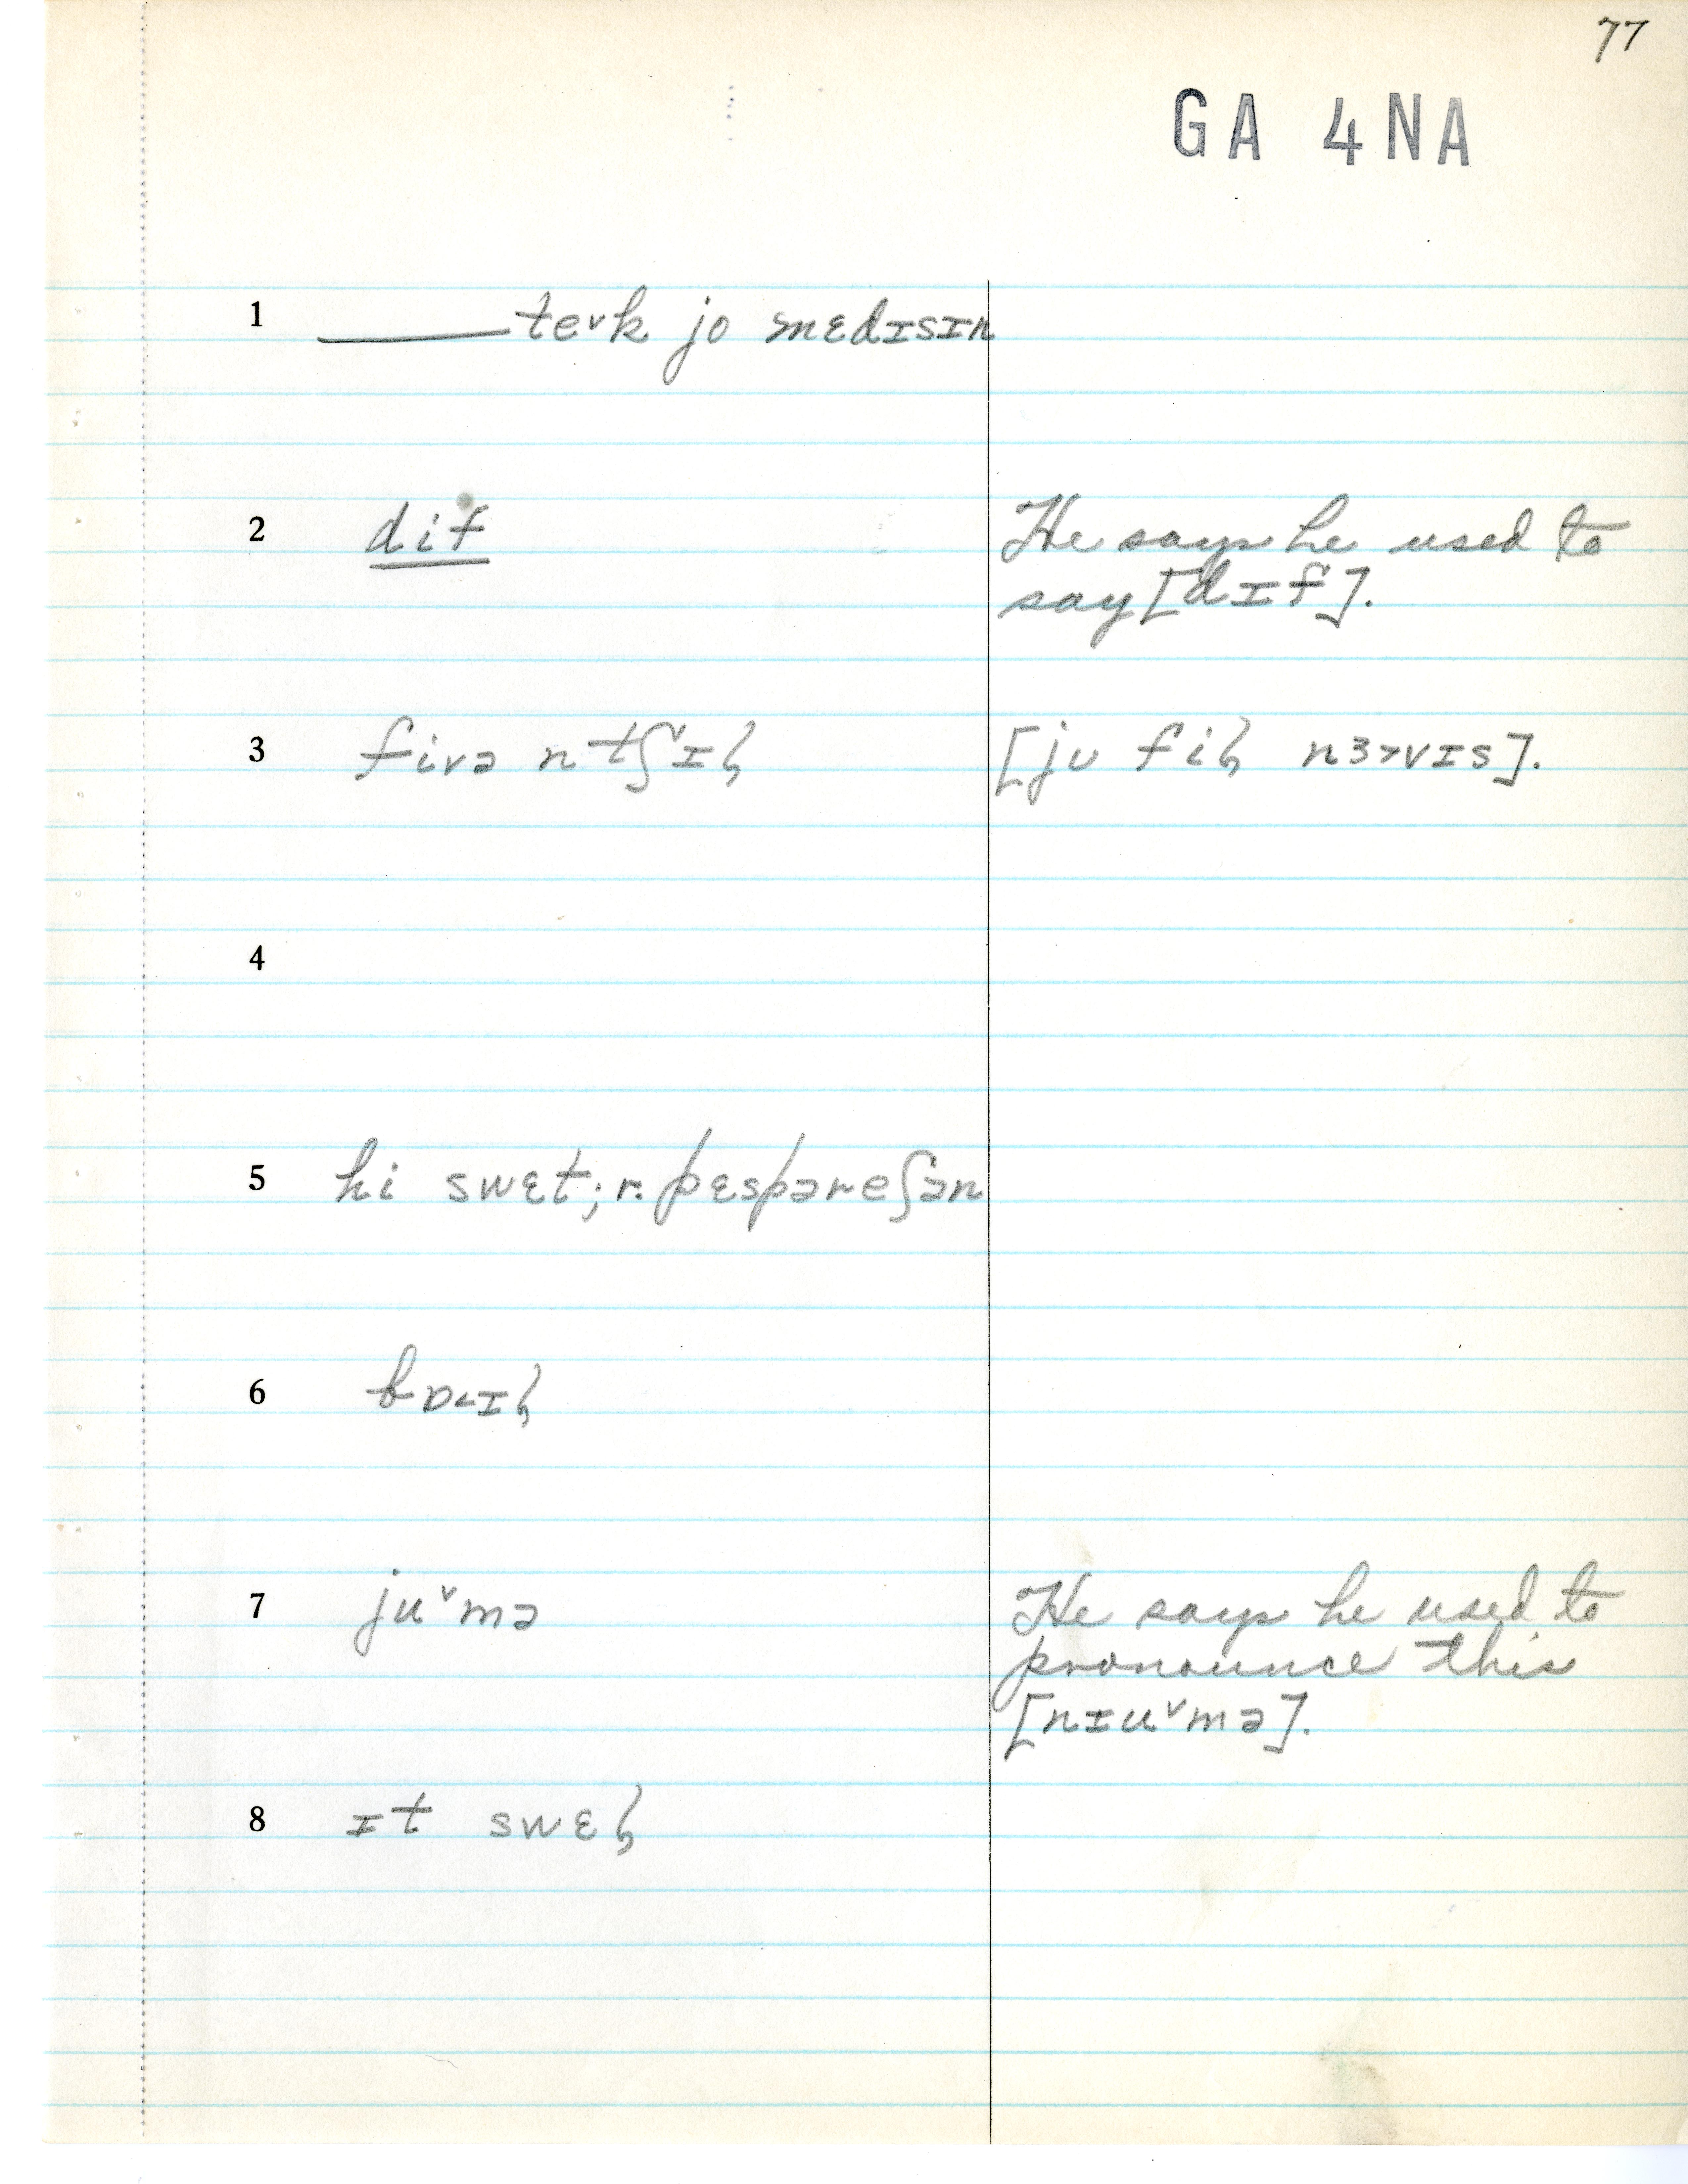 77
GA 4NA
1 ____ te˅k jo mɛdɪsɪn
2 dif He says he used to
say [dɪf].
3 fivə n tʃɪl [jʊ fil nɜ>vɪs].
4
5 hi swɛt; r. pɛspəreʃən
6 bɒ<ɪl
7 ju˅mə He says he used to
pronounce this
[nɪu˅mə].
8 ɪt swɛl